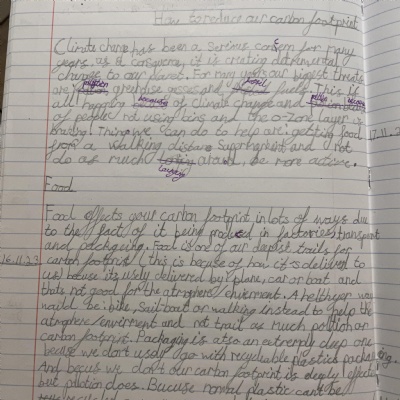 How to reduce our carbon footprint
Climate change has been a serious consern for many
years. as a consequence, it is creating detrimental
changes to our planet. For many years our biggest threats
are greenhouse gasses and fossil fuels. This is
all happening because of climate change and
of people not using bins and the o-zone layer is
Things we can do to help are: getting food
17.11.
from a walking distance Supermarket and not
do as much around, be more active.
Food
Food effects your carbon footprint in lots of ways due
to the fact of it being produced in factories transport
and packgeing. Food is one of our deepest trails for
16.11.23
carbon footprint (this is becuse of how it's delivered to
us) becuse its usely delivered by plane, car or boat and
thats not good for the atmosphere/ enviorment. A helthyer way
be: bike, Sail boat or walking instead to help the
atmosphere/envirment and not trait as much polition or
carbon footprint. Packaging is also an extremly deep one
becuse we don't usaly go with recycleable plastic packageing.
And becus we don't our carbon footprint is deeply effected
but polition does. Bucuse normal plastic cant be